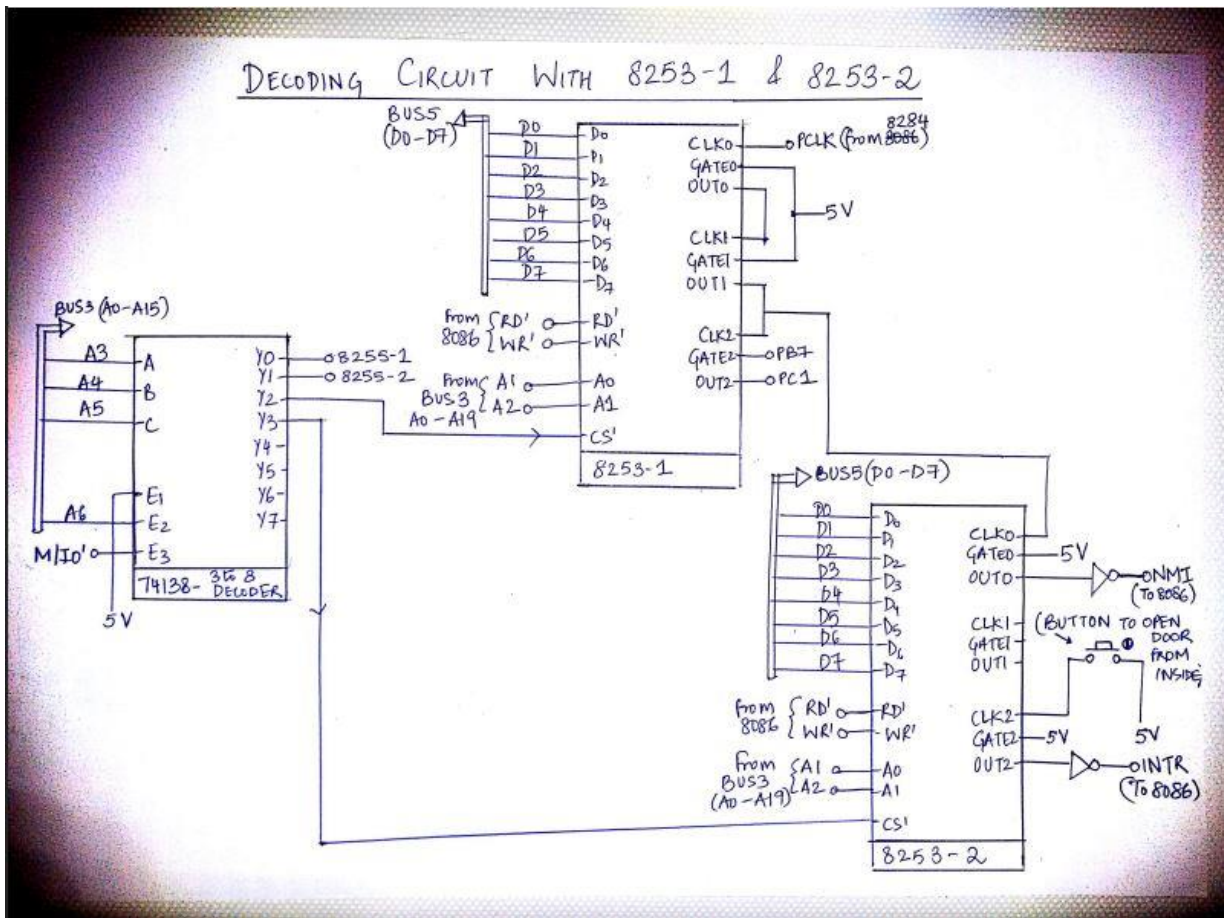 DECODING CIRCUIT WITH 8253-1 & 8253-2
BUS5
(D0-D7)
D0
D1
D2
D3
D4
D5
D6
D7
D0
D1
D2
D3
D4
D5
D6
D7
From
8086
RD'
WR'
RD'
WR'
From
BUS3
A0-A19
A1
A2
A0
A1
CS'
8253-1
CLK0
GATE0
OUT0
CLK1
GATE1
OUT1
CLK2
GATE2
OUT2
8284
PCLK (from 8086)
5V
PB7
PC1
BUS3 (A0-A15)
A3
A4
A5
A6
M/IO'
5V
A
B
C
E1
E2
E3
Y0
Y1
Y2
Y3
Y4
Y5
Y6
Y7
8255-1
8255-2
74138- 3 to 8
DECODER
BUS5 (D0-D7)
D0
D1
D2
D3
D4
D5
D6
D7
D0
D1
D2
D3
D4
D5
D6
D7
from
8086
RD'
WR'
RD'
WR'
from
BUS3
(A0-A19)
A1
A2
A0
A1
CS'
8253-2
CLK0
GATE0
OUT0
CLK1
GATE1
OUT1
CLK2
GATE2
OUT2
5V
NMI
(To 8086)
(BUTTON TO OPEN
DOOR
FROM
INSIDE)
5V
5V
INTR
(To 8086)